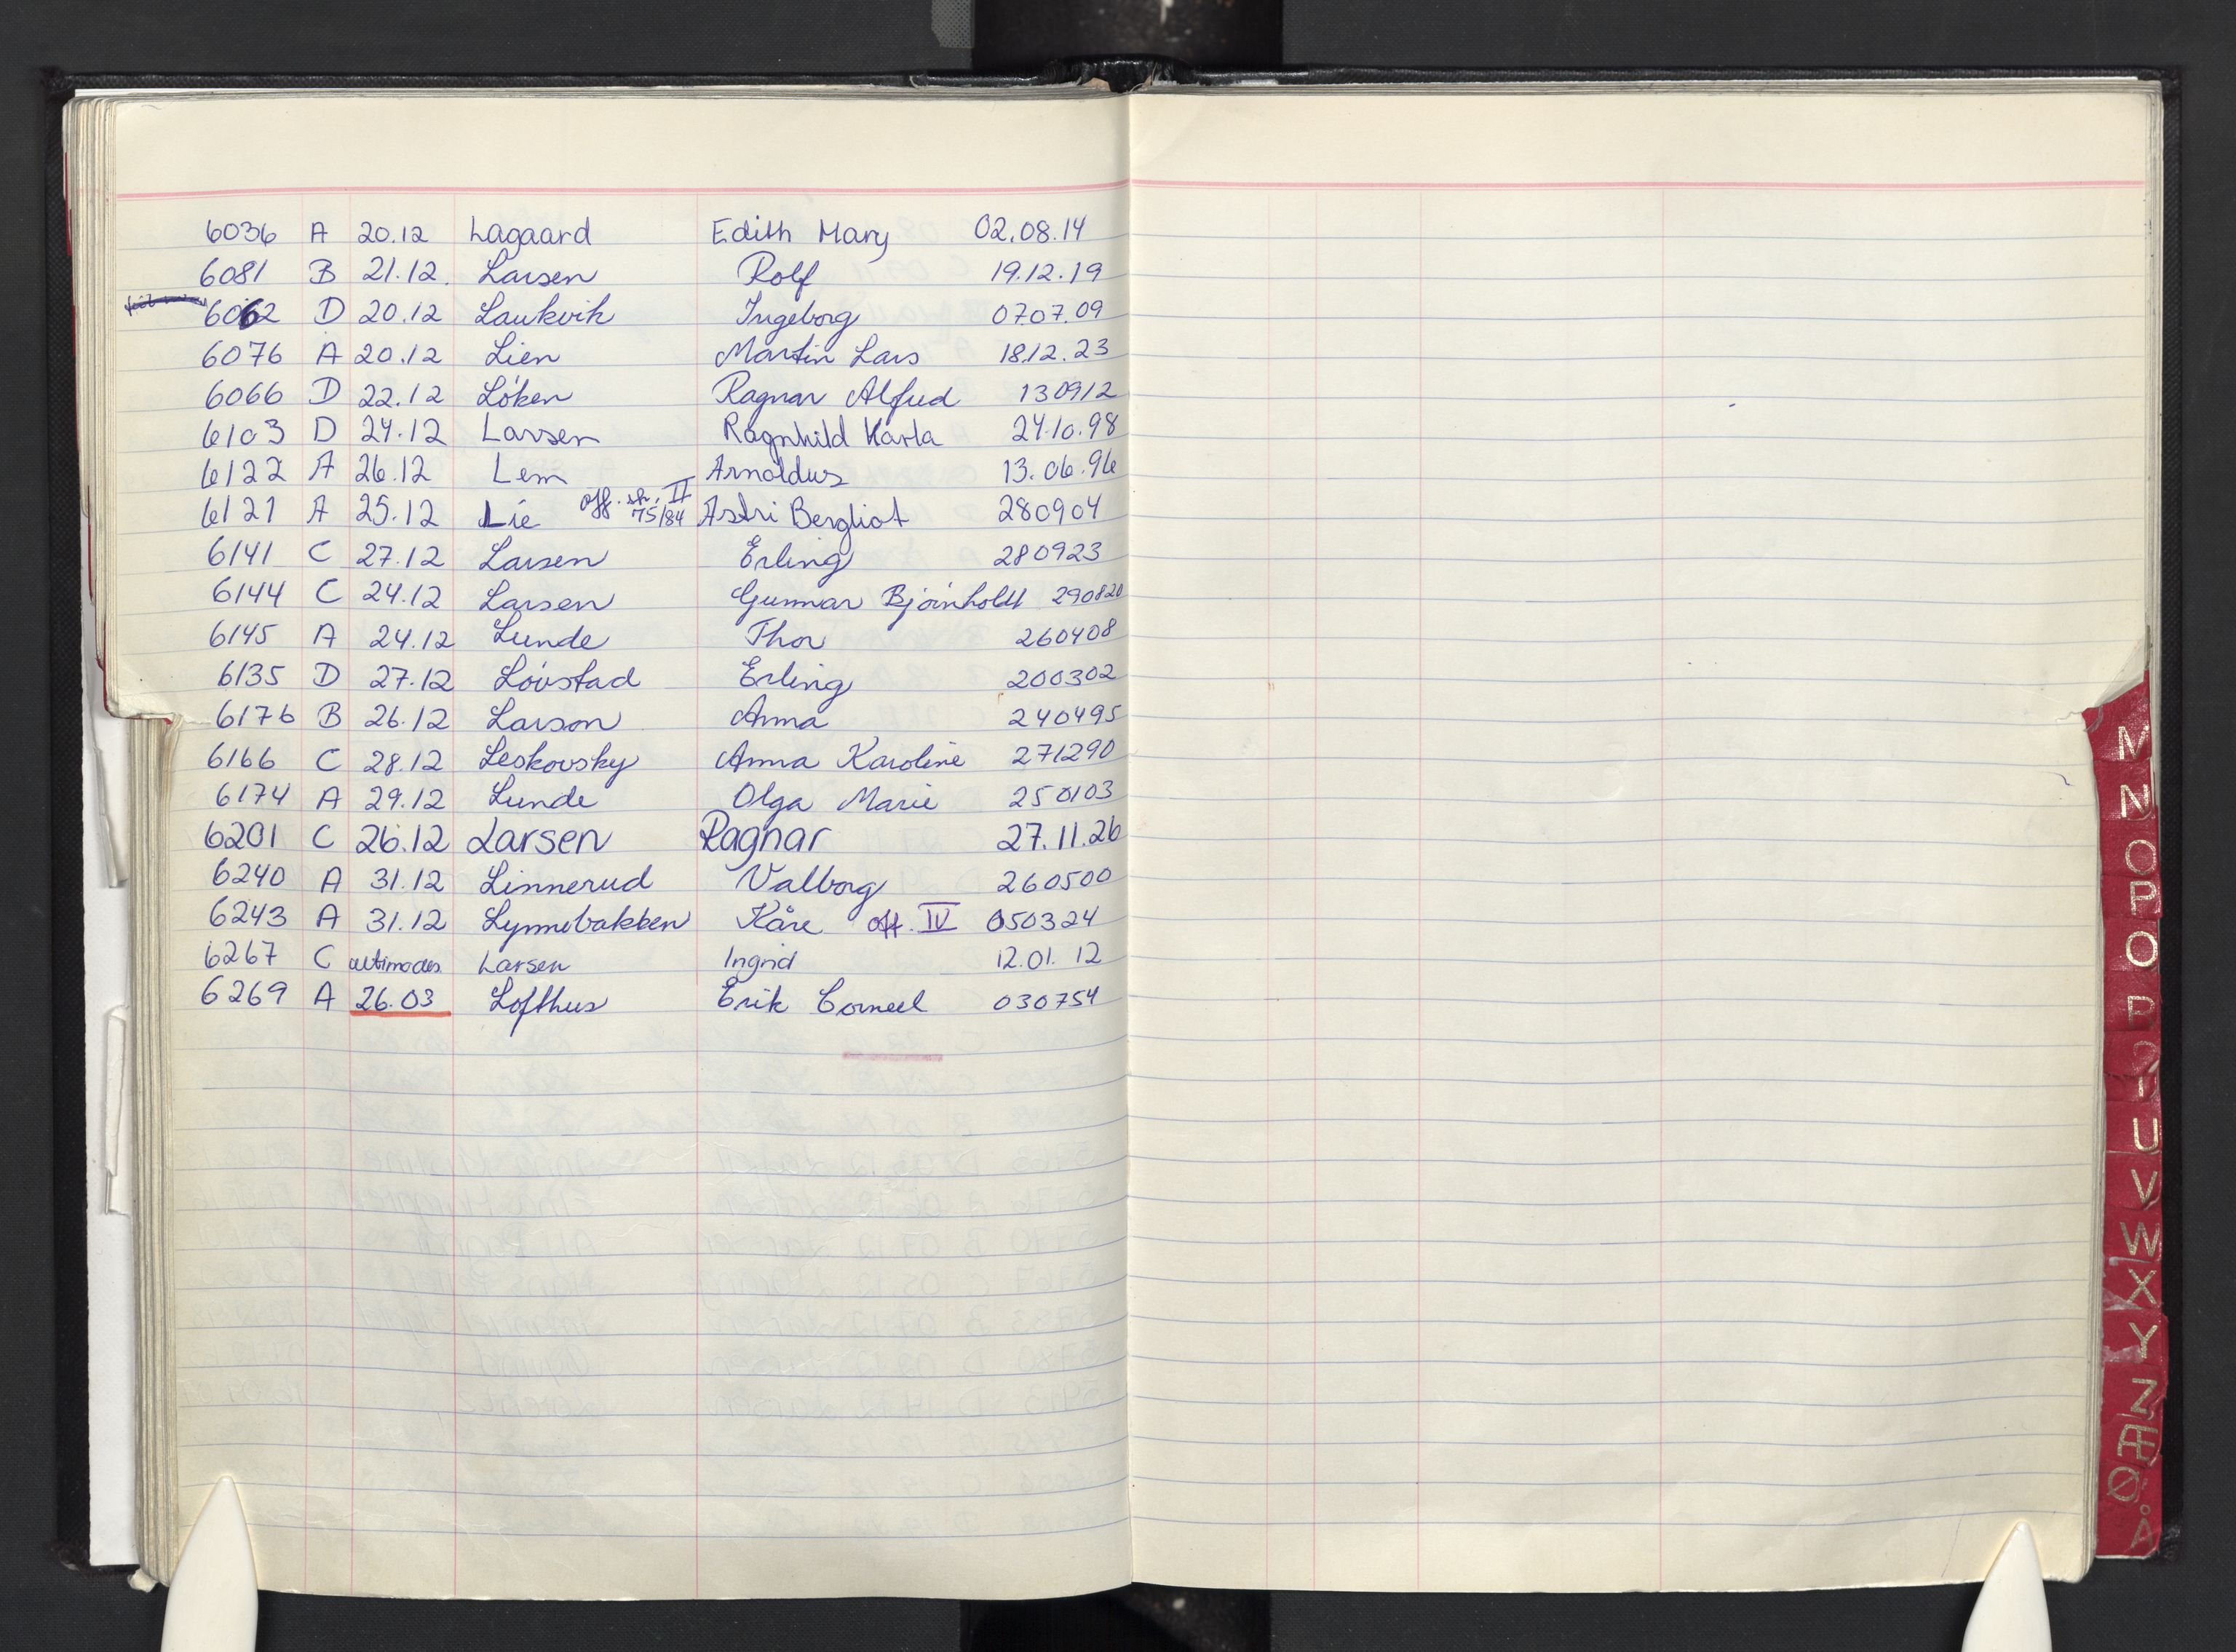 6036 A 20.12 Lagaard Edith Mary 02.08.14
6081 B 21.12. Larsen Rolf 19.12.19
6062 D 20.12 Laukvik Ingeborg 07.07.09
6076 A 20.12 Lien Martin Lars 18.12.23
6066 D 22.12 Løken Ragnar Alfred 130912
6103 D 24.12 Larsen Ragnhild Karla 24.10.98
6122 A 26.12 Lem Arnoldus 13.06.96
6121 A 25.12 Lie off. sk. II 75/84 Astri Bergliot 280904
6141 C 27.12 Larsen Erling 280923
6144 C 24.12 Larsen Gunnar Bjørnholdt 290820
6145 A 24.12 Lunde Thor 260408
6135 D 27.12 Løvstad Erling 200302
6176 B 26.12 Larson Anna 240495
6166 C 28.12 Leskovsky Anna Karoline 271290
6174 A 29.12 Lunde Olga Marie 250103
6201 C 26.12 Larsen Ragnar 27.11.26
6240 A 31.12 Linnerud Valborg 260500
6243 A 31.12 Lynnebakken Kåre off. IV 050324
6267 C ultimodes. Larsen Ingrid 12.01.12
6269 A 26.03 Lofthus Erik Corneel 030754
M
N
O
P
Q
R
T
U
V
W
X
Y
Z
Æ
Ø
Å